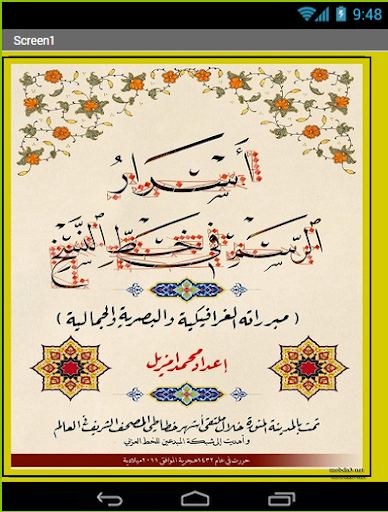 9:48
Screen1
أسرار
الرسم في خط النسخ
( مبرراته الغرافيكية والبصرية والجمالية )
إعداد محمد امزيل
تمت بالمدينة المنورة خلال ملتقى أشهر خطاطي المصحف الشريف في العالم
و أهديت إلى شبكة المبدعين للخط العربي
mobda3.net
حررت في عام ١٤٣٢ هجرية الموافق ٢٠١١ ميلادية